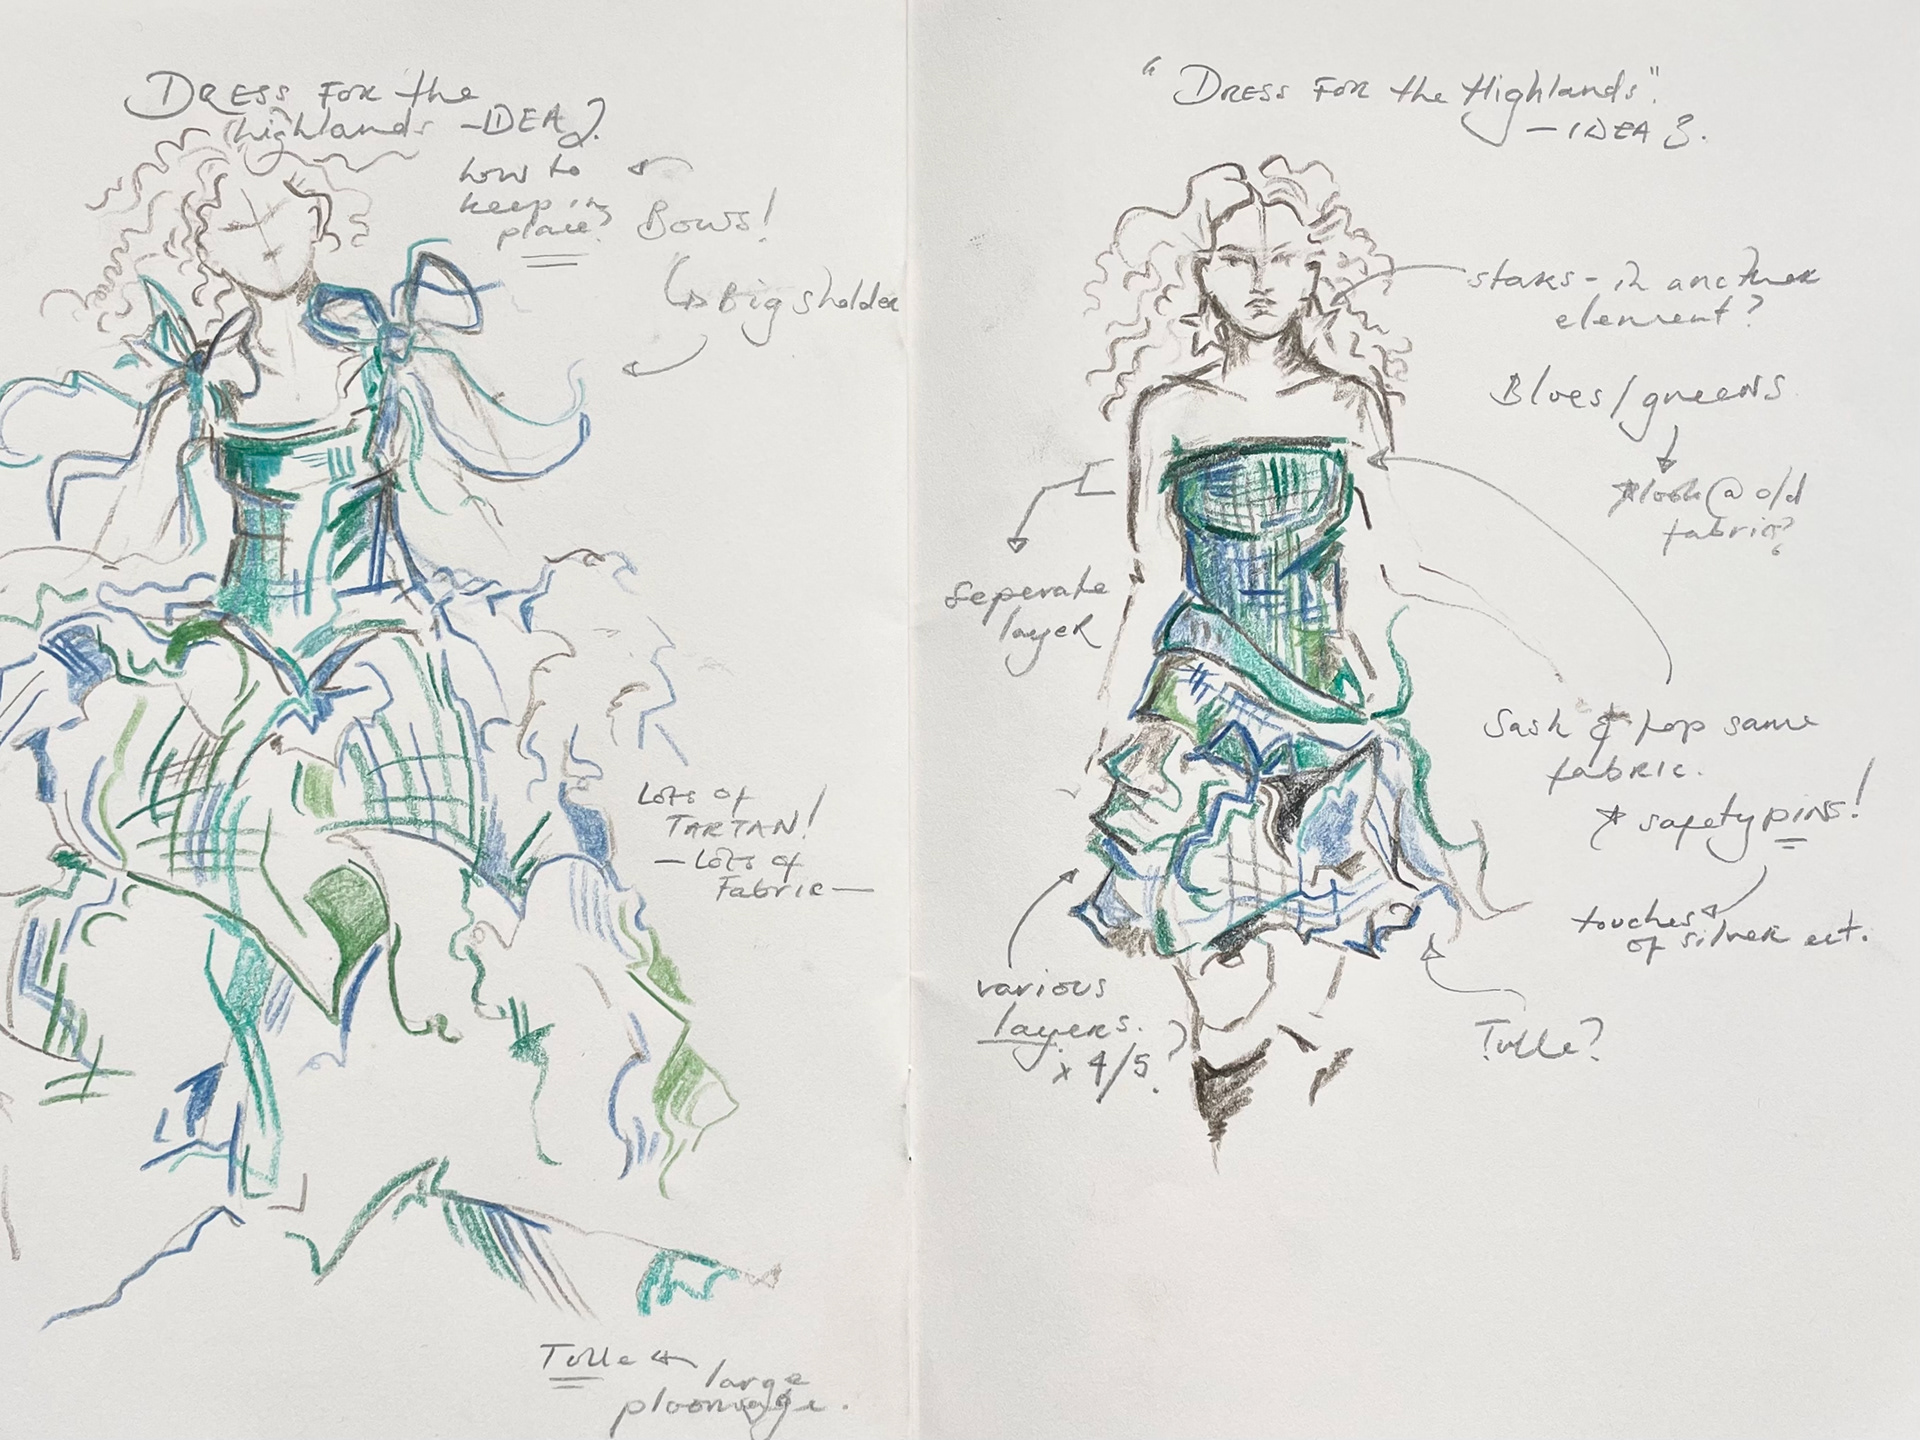 DRESS FOR the
highlands - IDEA 2.
how to
keep in
place?
Bows!
Big sholder
LOTS of
TARTAN!
- LOTS of
Fabric -
Tulle
large
ploomage.
"DRESS FOR the Highlands".
- IDEA 3.
stars - in another
element?
Blues/greens
look @ old
fabric?
seperate
layer
Sash & top same
fabric.
* safety pins!
touches
of silver ect.
various
layers.
x 4/5.
Tulle?